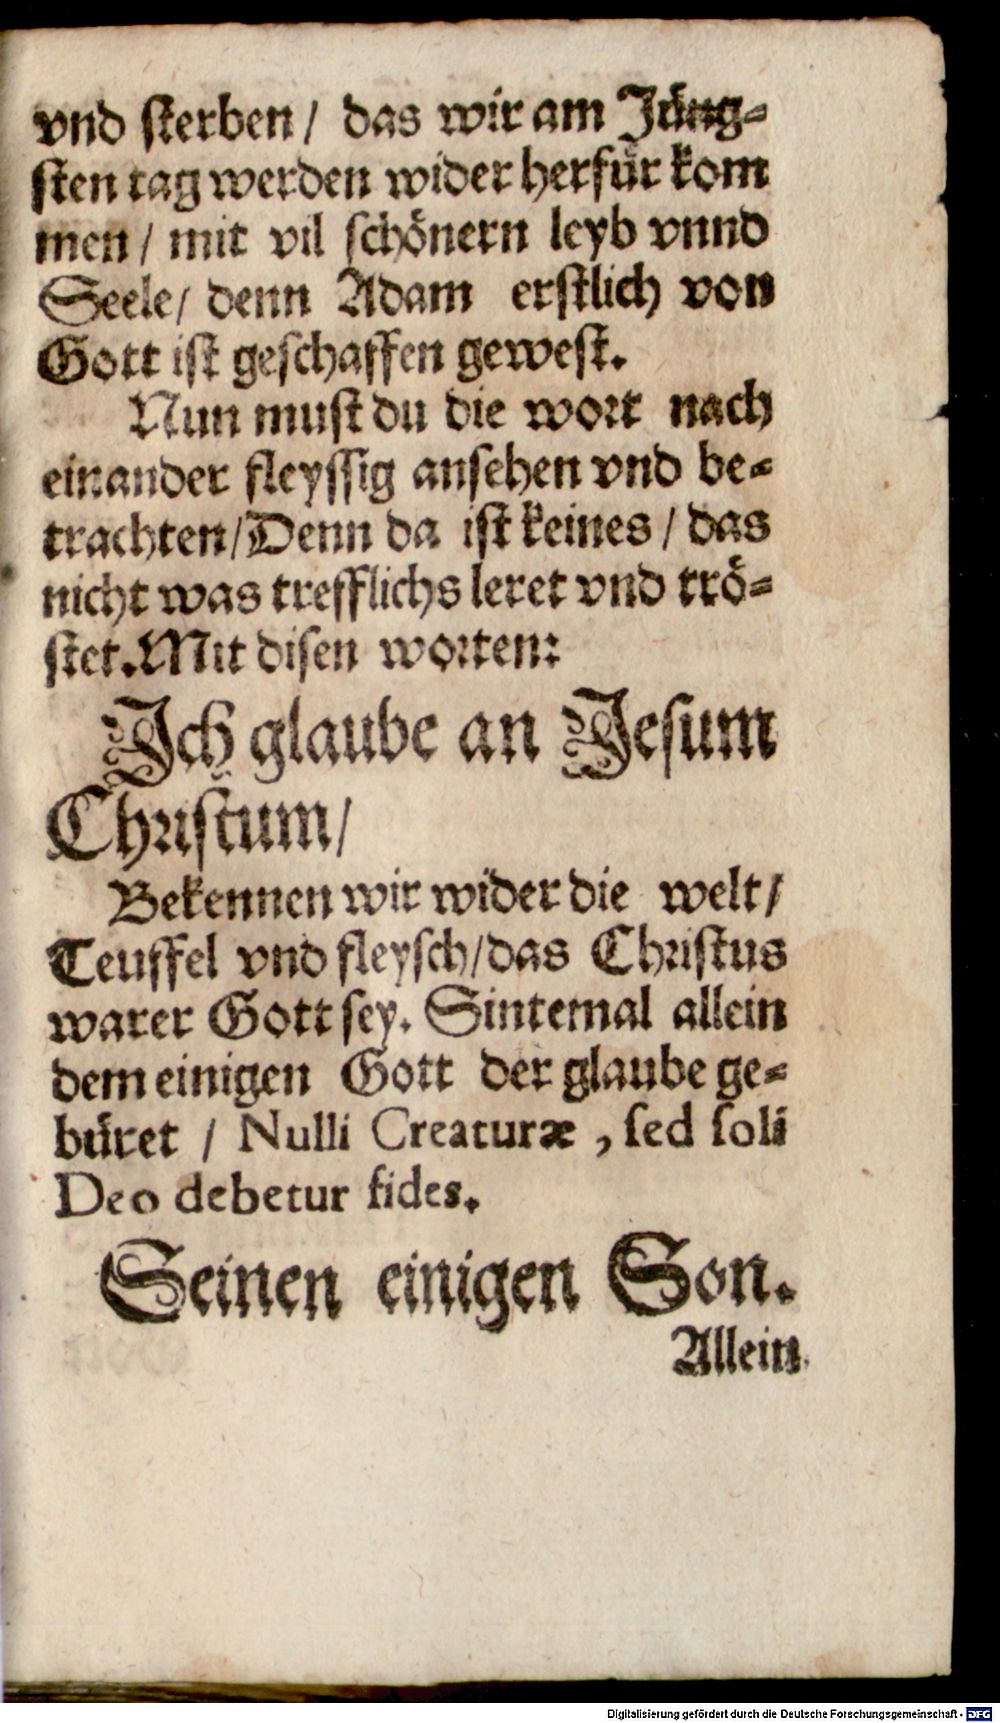 vnd sterben / das wir am Jüng-
sten tag werden wider herfür kom
men / mit vil schönern leyb vnnd
Seele / denn Adam erstlich von
Gott ist geschaffen gewest.
Nun must du die wort nach
einander fleyssig ansehen vnd be-
trachten / Denn da ist keines / das
nicht was trefflichs leret vnd trö-
stet. Mit disen worten:
Ich glaube an Jesum
Christum /
Bekennen wir wider die welt /
Teuffel vnd fleysch / das Christus
warer Gott sey. Sintemal allein
dem einigen Gott der glaube ge-
büret / Nulli Creaturæ , sed soli
Deo debetur fides.
Seinen einigen Son.
Allein
Digitalisierung gefördert durch die Deutsche Forschungsgemeinschaft - DFG